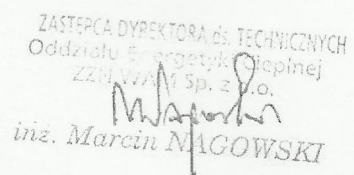 ZASTĘPCA DYREKTORA ds. TECHNICZNYCH
Oddziału Energetyki Cieplnej
ZZN WAM Sp. z o.o.
inż. Marcin NAGOWSKI